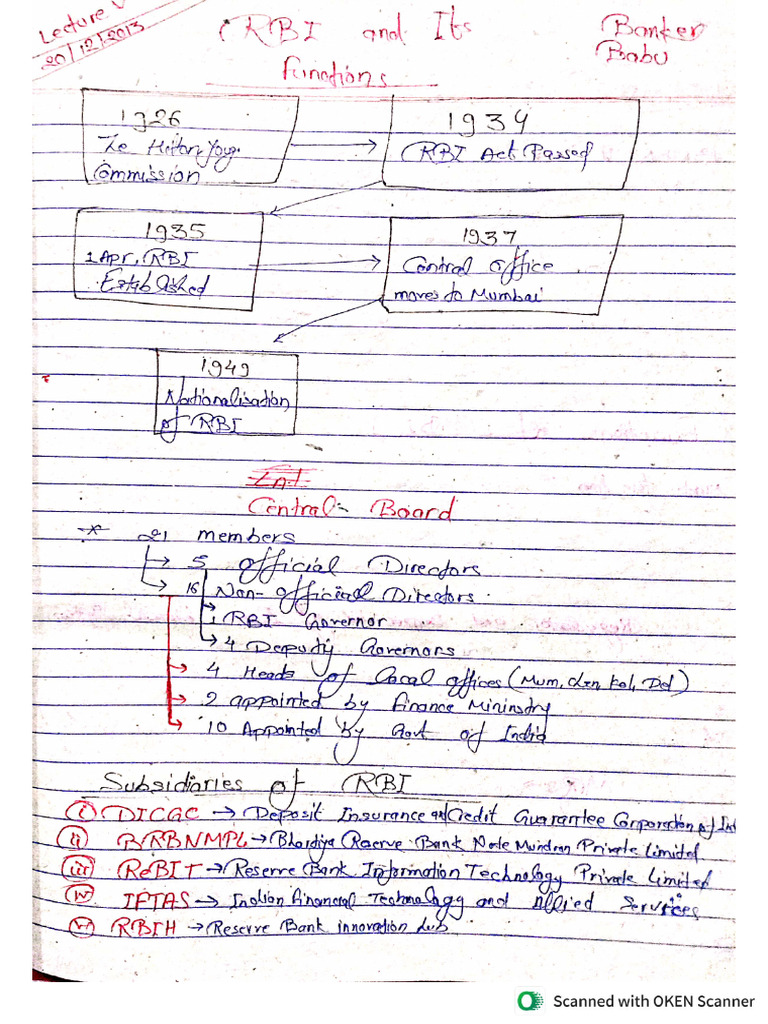 Lecture V
20/12/2013
RBI and Its
Functions
Banker
Babu
1926
Hilton Young
Commission
1934
RBI Act Passed
1935
1 Apr, RBI
Established
1937
Central office
moves to Mumbai
1949
Nationalisation
of RBI
Central Board
* 21 members
→ 5 Official Directors
→ 16 Non-Official Directors
→ 1 RBI Governor
→ 4 Deputy Governors
→ 4 Heads of Local offices (Mum, Kol, Del)
→ 2 appointed by Finance Mininstry
→ 10 Appointed by Govt of India
Subsidiaries of RBI
(i) DICGC → Deposit Insurance and Credit Guarantee Corporation of
(ii) BRBNMPL → Reserve Bank Note Mudran Private Limited
(iii) ReBIT → Reserve Bank Information Technology Private Limited
(iv) IFTAS → Indian Financial Technology and Allied Services
(v) RBIH → Reserve Bank innovation hub
Scanned with OKEN Scanner